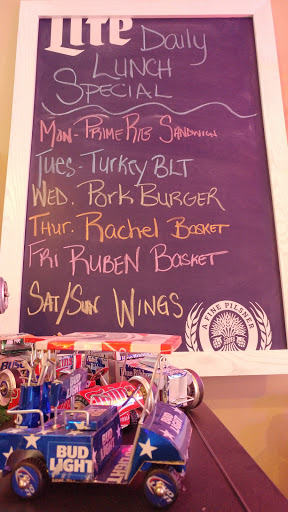 Lite Daily
LUNCH
SPECIAL
Mon - PRIME RIB SANDWICH
Tues - Turkey BLT
WED. PORK BURGER
THUR. Rachel BASKET
FRI RUBEN BASKET
SAT/SUN WINGS
A FINE PILSNER
BUD
LIGHT
BUD
LIGHT